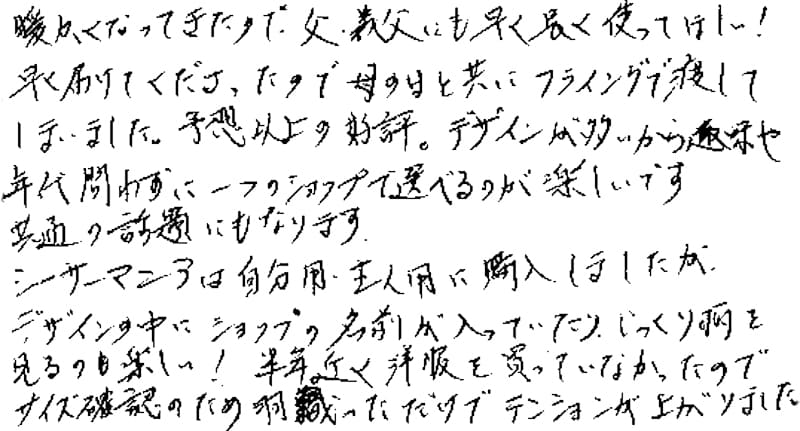 暖かくなってきたので、父・義父にも早く長く使ってほしい！
早く届けてくださったので母の日と共にフライングで渡して
しまいました。予想以上の好評。デザインが多いから趣味や
年代問わずに一つのショップで選べるのが楽しいです
共通の話題にもなります。
シーサーマニアは自分用・主人用に購入しましたが、
デザインの中にショップの名前が入っていたり、じっくり柄を
見るのも楽しい！半年近く洋服を買っていなかったので
サイズ確認のため羽織っただけでテンションが上がりました